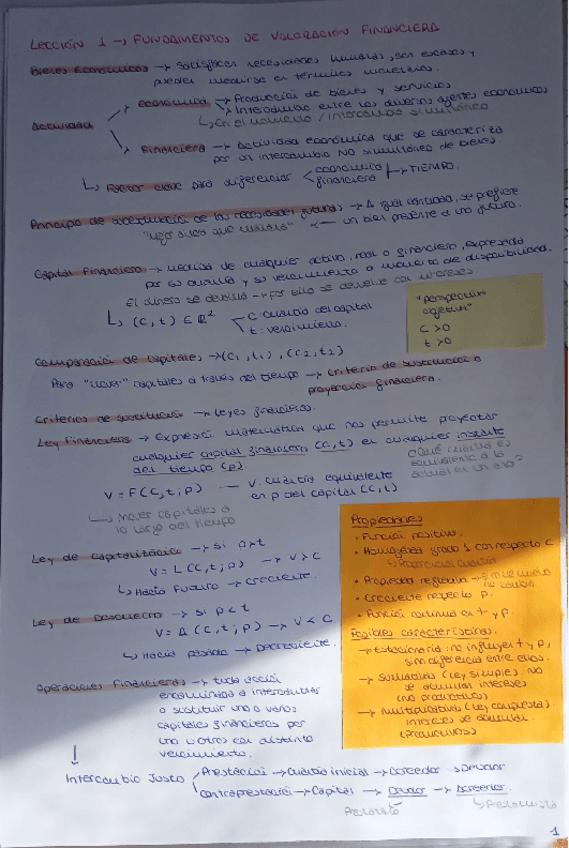 LECCIÓN 1 → FUNDAMENTOS DE VALORACIÓN FINANCIERA
Bienes Económicos → Satisfacer necesidades humanas, ser escasos y
pueden medirse en términos monetarios.
Actividad
económica → Producción de bienes y servicios
Intercambio entre los diversos agentes económicos
↳ En el momento / intercambio simultáneo
Financiera → Actividad económica que se caracteriza
por un intercambio NO simultáneo de bienes.
↳ Factor clave para diferenciar < económica financiera → TIEMPO.
Principio de subestimación de las necesidades futuras → A igual cantidad, se prefiere
un bien presente a uno futuro.
Capital Financiero → Medida de cualquier activo, real o financiero, expresada
por su cuantía y su vencimiento o momento de disponibilidad.
El dinero se → por ello se devuelve con intereses
↳ (C, t) ∈ ℝ²
C: cuantía del capital
t: vencimiento.
"perspectiva
objetiva"
C > 0
t > 0
Comparación de capitales → (C₁, t₁), (C₂, t₂)
Para "mover" capitales a través del tiempo → Criterio de sustitución o
proyección financiera.
Criterios de sustitución → Leyes financieras.
Ley Financiera → Expresión matemática que nos permite proyectar
cualquier capital financiero (C, t) en cualquier instante
del tiempo (p).
¿Qué cuantía es
equivalente a la
actual en un año?
V = F(C, t; p) → V. cuantía equivalente
en p del capital (C, t)
↳ Mover capitales a
lo largo del tiempo
Ley de Capitalización → si p > t
V = L (C, t; p) → V > C
↳ Hacia Futuro → Creciente.
Ley de Descuento → si p < t
V = A (C, t; p) → V < C
↳ Hacia pasado → Decreciente.
Propiedades
• Función positiva.
• Homogénea grado 1 con respecto C
↳ Proporcional cuantía
• Propiedad reflexiva →
• Creciente respecto p.
• Función continua en t y p.
Posibles características.
→ Estacionaria: no influyen t y p,
sino diferencia entre ellos.
→ Sumativa (Ley simple): No
se acumulan intereses
(no productivos)
→ Multiplicativa (Ley compuesta)
Intereses se acumulan
(Productivos)
Operaciones Financieras → toda acción
encaminada a intercambiar
o sustituir uno o varios
capitales financieros por
uno u otros con distinto
vencimiento.
↓
Intercambio Justo
Prestación → Cuantía inicial → Acreedor → Deudor
Contraprestación → Capital → Deudor → Acreedor.
1